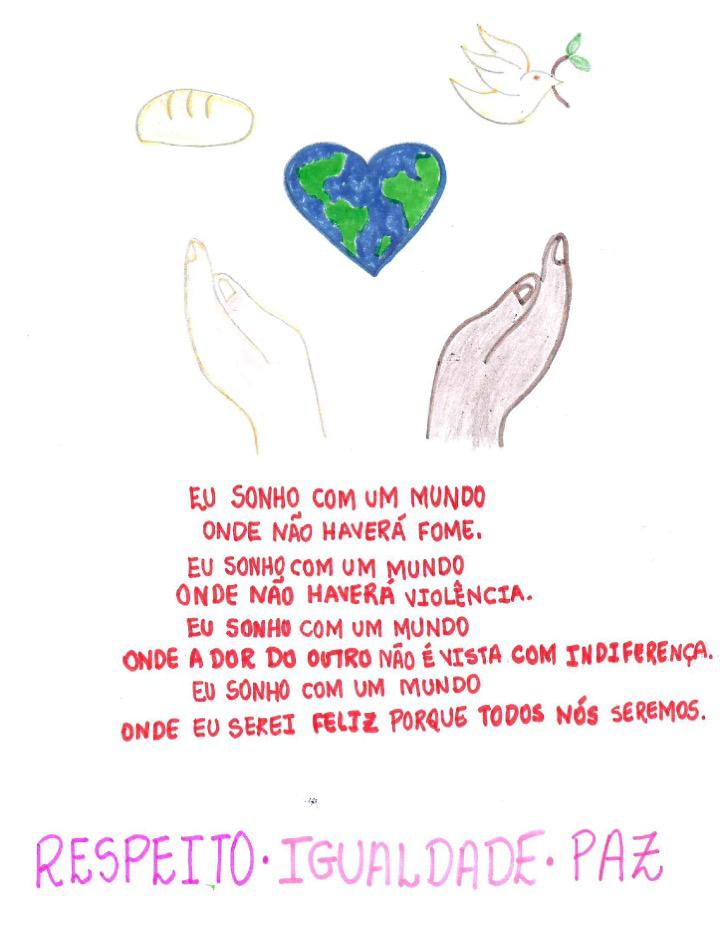 EU SONHO COM UM MUNDO
ONDE NÃO HAVERÁ FOME.
EU SONHO COM UM MUNDO
ONDE NÃO HAVERÁ VIOLÊNCIA.
EU SONHO COM UM MUNDO
ONDE A DOR DO OUTRO NÃO É VISTA COM INDIFERENÇA.
EU SONHO COM UM MUNDO
ONDE EU SEREI FELIZ PORQUE TODOS NÓS SEREMOS.
RESPEITO · IGUALDADE · PAZ